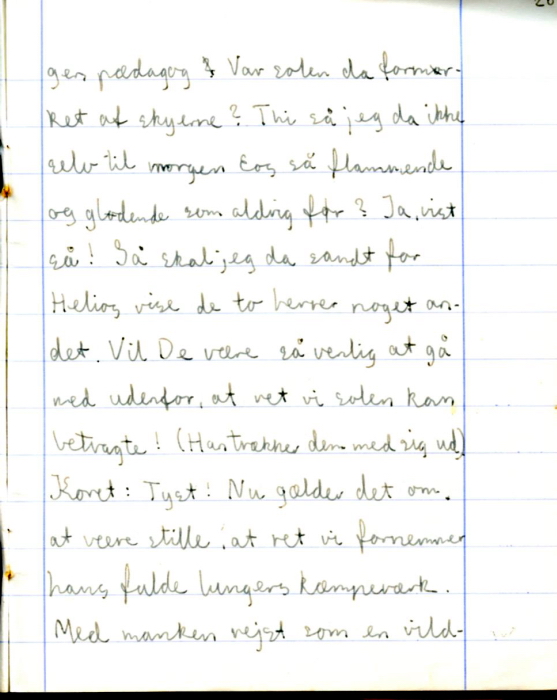 20
gen pædagog? Var solen da formør-
ket af skyerne? Thi så jeg da ikke
selv til morgen Eos så flammende
og glødende som aldrig før? Ja, vist
så! Så skal jeg da sandt for
Helios vise de to herrer noget an-
det. Vil De være så venlig at gå
med udenfor, at ret vi solen kan
betragte! (Han trækker dem med sig ud)
Koret: Tyst! Nu gælder det om,
at være stille, at ret vi fornemmer
hans fulde lungers kæmpeværk.
Med manken rejst som en vild-